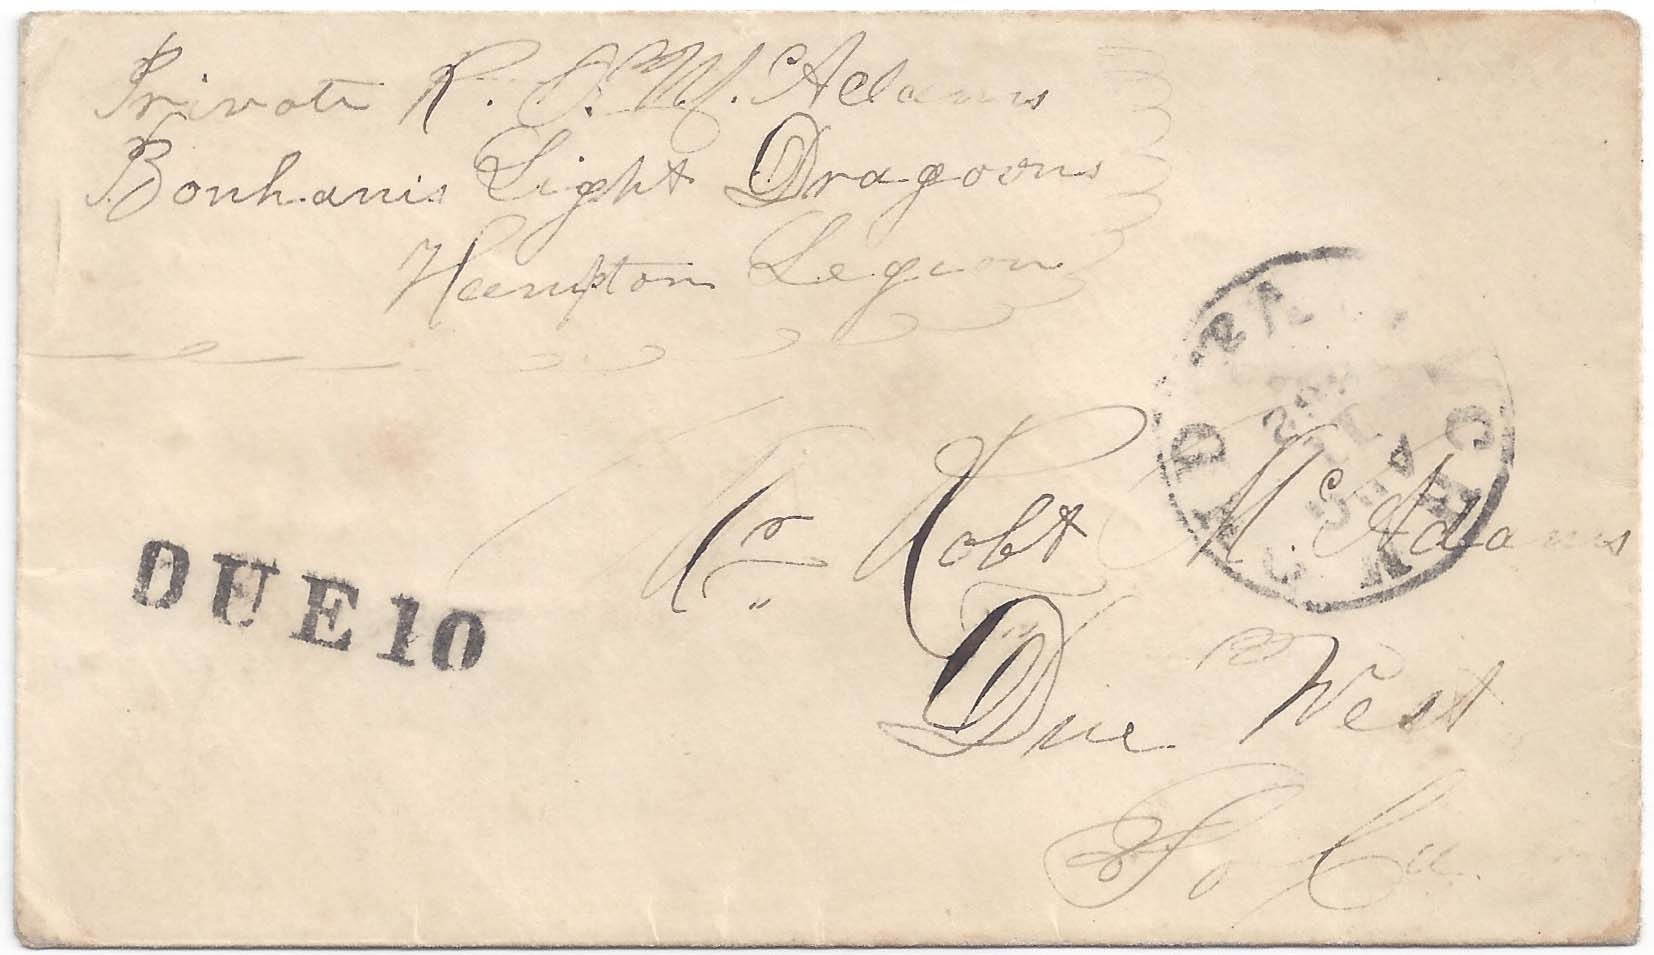 Private R. S. M. Adams
Bonham's Light Dragoons
Hampton Legion
VA.
AUG
DUE 10
Mr Robt Mc. Adams
Due West
So Ca